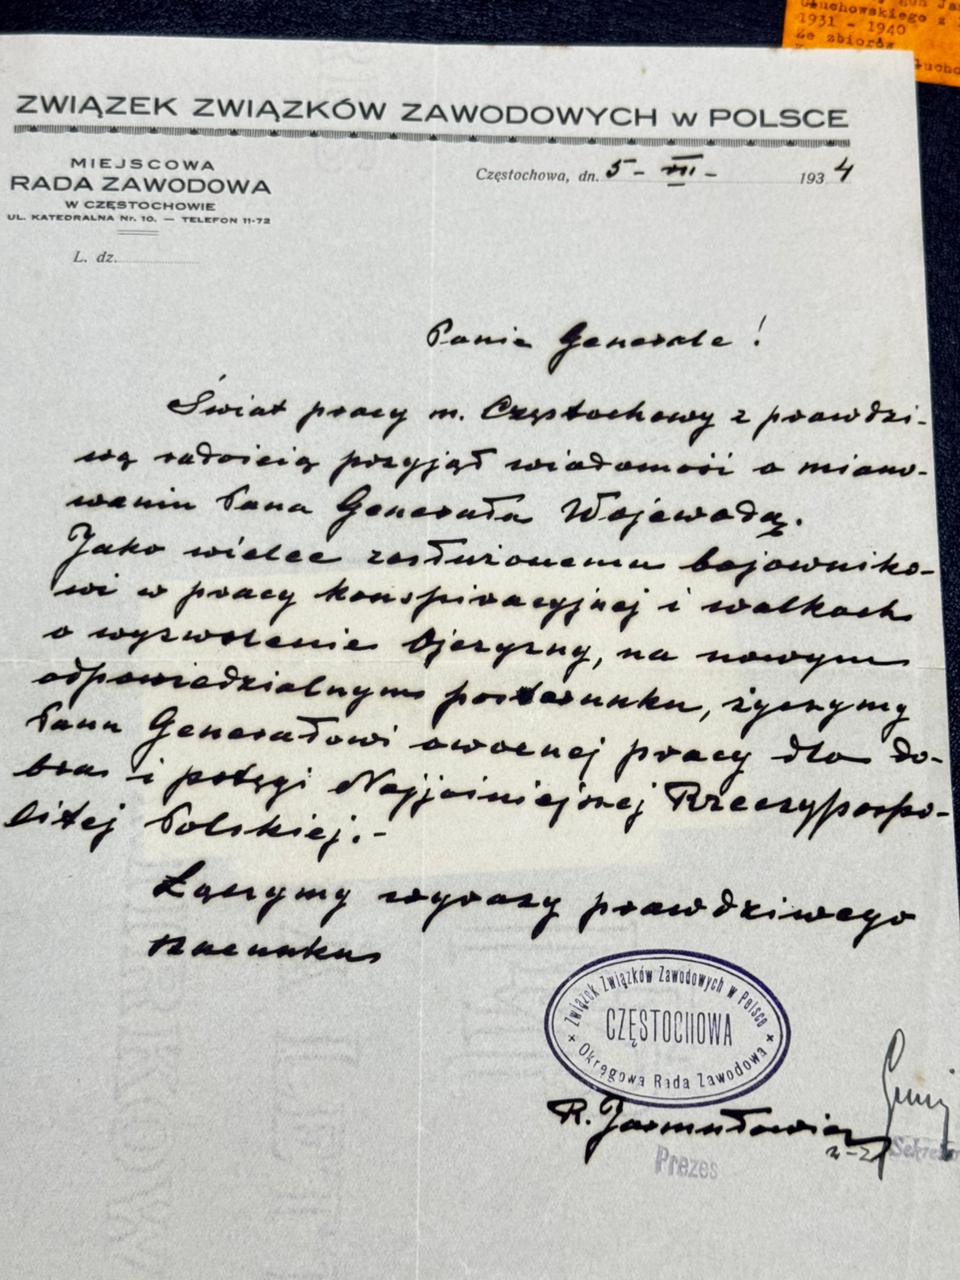 1931 - 1940
ZWIĄZEK ZWIĄZKÓW ZAWODOWYCH w POLSCE
MIEJSCOWA
RADA ZAWODOWA
W CZĘSTOCHOWIE
UL. KATEDRALNA Nr. 10. — TELEFON 11-72
L. dz.
Częstochowa, dn. 5 - VII - 1934
Panie Generale!
Świat pracy m. Częstochowy z prawdzi-
wą radością przyjął wiadomość o miano-
waniu Pana Generała Wojewodą.
Jako wielce zasłużonemu bojowniko-
wi w pracy konspiracyjnej i walkach
o wyzwolenie Ojczyzny, na nowym
odpowiedzialnym posterunku, życzymy
Panu Generałowi owocnej pracy dla do-
bra i potęgi Najjaśniejszej Rzeczypospo-
litej Polskiej.-
Łączymy wyrazy prawdziwego
szacunku
Związek Związków Zawodowych w Polsce
CZĘSTOCHOWA
Okręgowa Rada Zawodowa
R. Jarmułowicz
Prezes